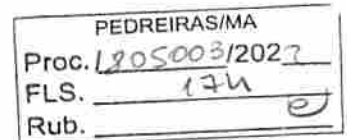 PEDREIRAS/MA
Proc. 1805003/2022
FLS. 174
Rub.